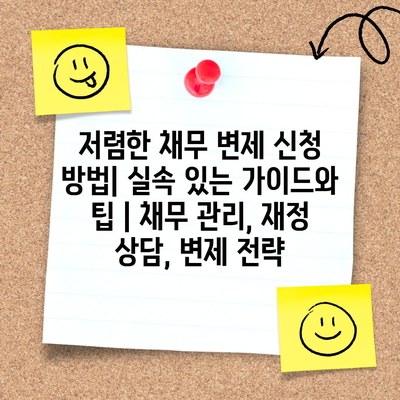 저렴한 채무 변제 신청
방법| 실속 있는 가이드와
팁 | 채무 관리, 재정
상담, 변제 전략